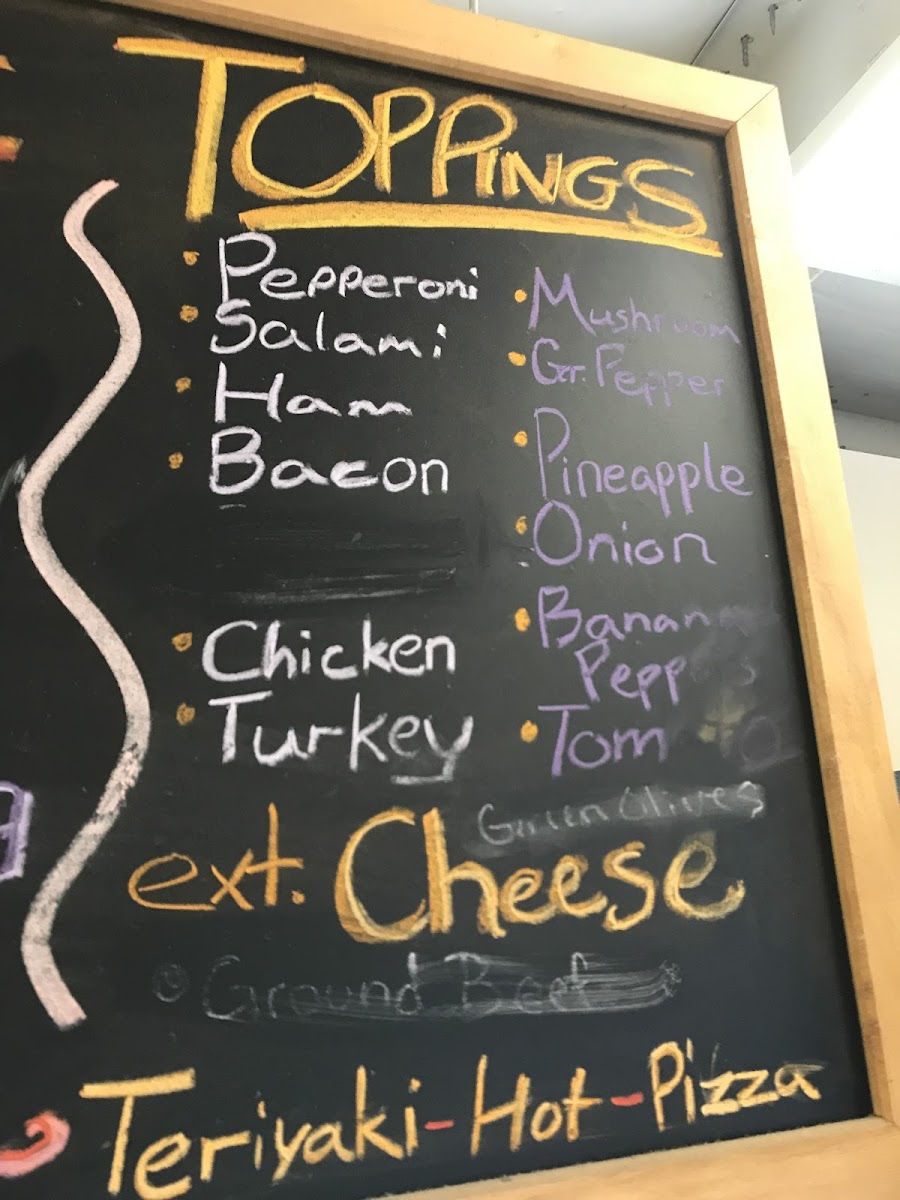 TOPPINGS
• Pepperoni
• Salami
• Ham
• Bacon
• Chicken
• Turkey
• Mushroom
• Gr. Pepper
• Pineapple
• Onion
• Banana
Peppers
• Tomato
Green Olives
ext. Cheese
• Ground Beef
Teriyaki-Hot-Pizza